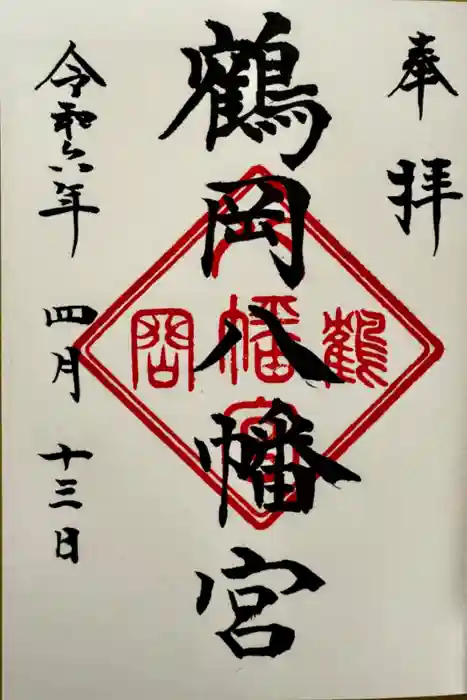 奉拝
鶴岡八幡宮
令和六年 四月 十三日
鶴
八
幡
宮
岡